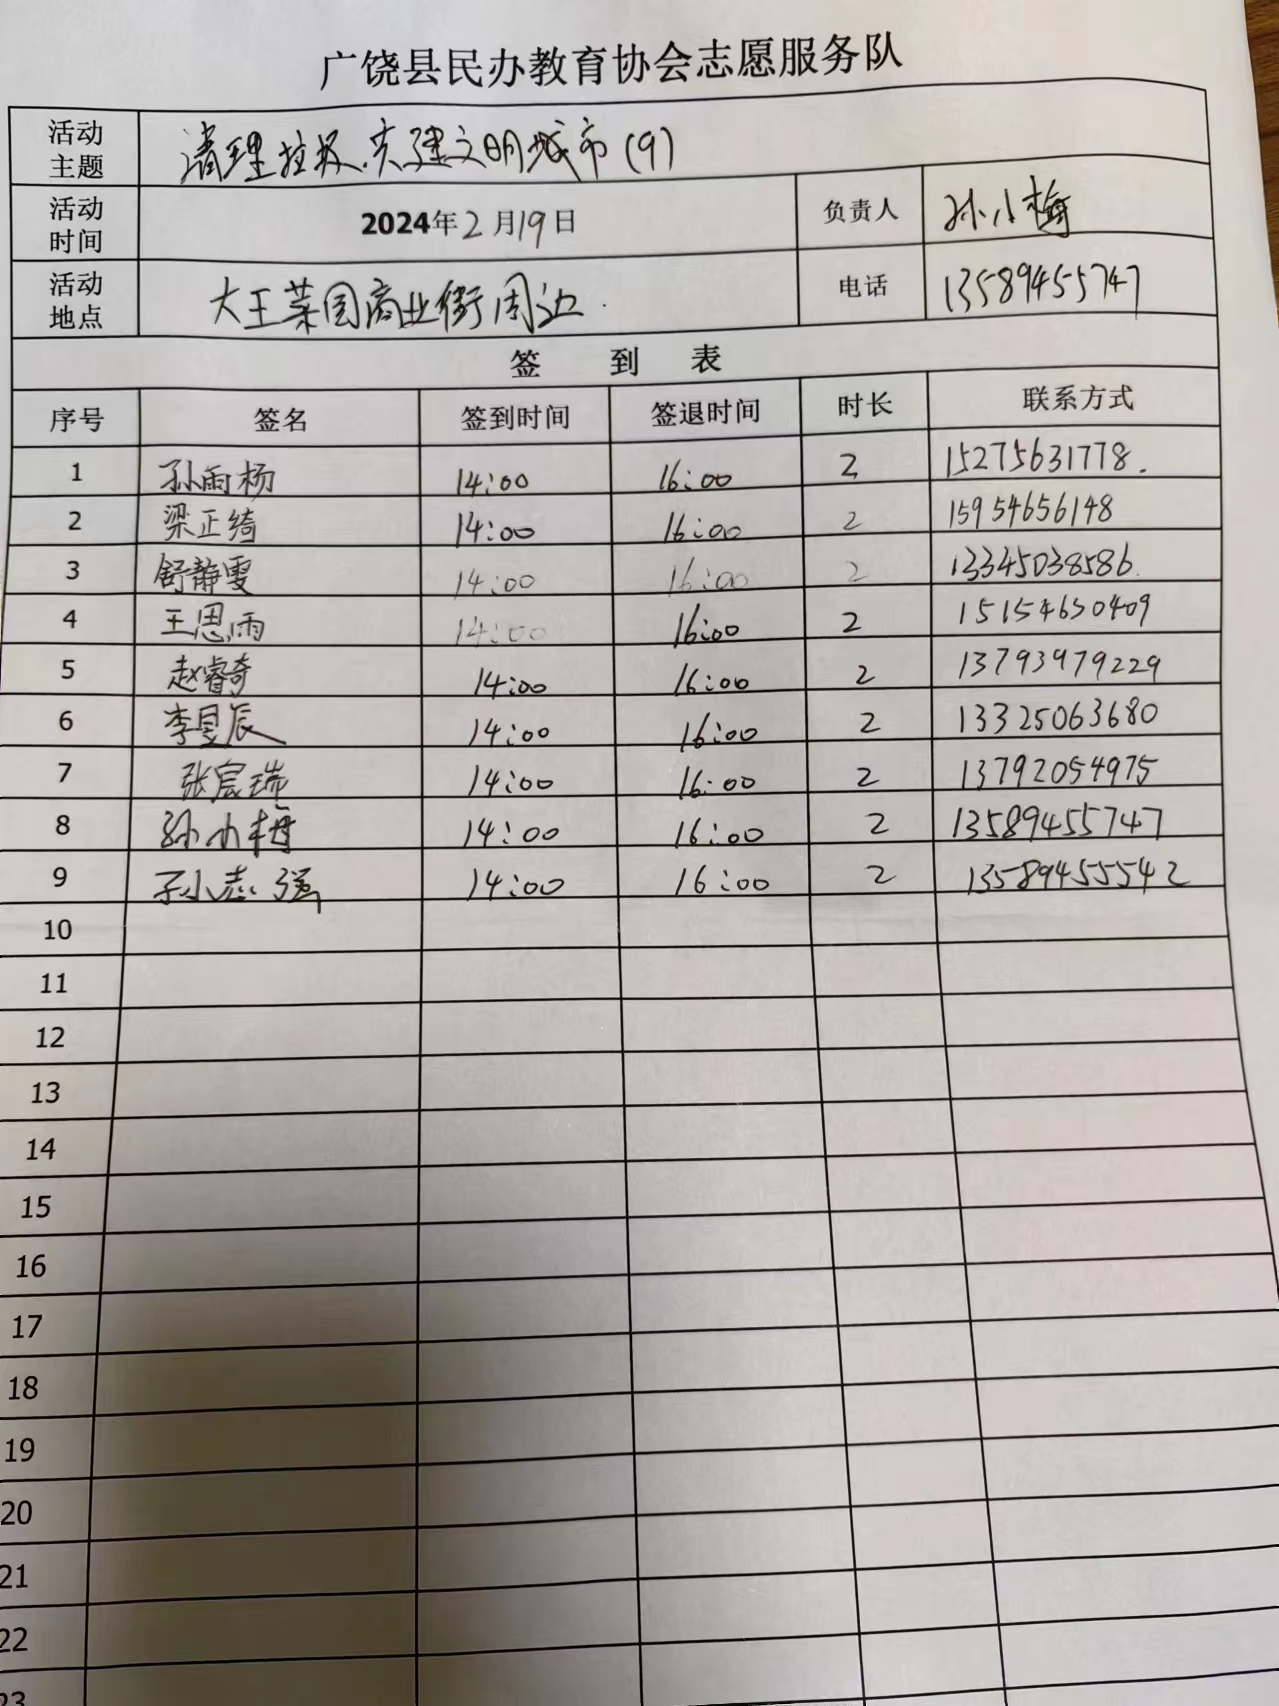 广饶县民办教育协会志愿服务队
活动主题 清理垃圾、共建文明城市(9)
活动时间 2024年2月19日 负责人 孙小梅
活动地点 大王菜园商业街周边. 电话 13589455747
签 到 表
序号 签名 签到时间 签退时间 时长 联系方式
1 孙雨杨 14:00 16:00 2 15275631778.
2 梁正绮 14:00 16:00 2 15954656148
3 舒静雯 14:00 16:00 2 13345038586.
4 王思雨 14:00 16:00 2 15154630409
5 赵睿奇 14:00 16:00 2 13793979229
6 李昱辰 14:00 16:00 2 13325063680
7 张宸瑞 14:00 16:00 2 13792054975
8 孙小梅 14:00 16:00 2 13589455747
9 孙志强 14:00 16:00 2 13589455542
10
11
12
13
14
15
16
17
18
19
20
21
22
23